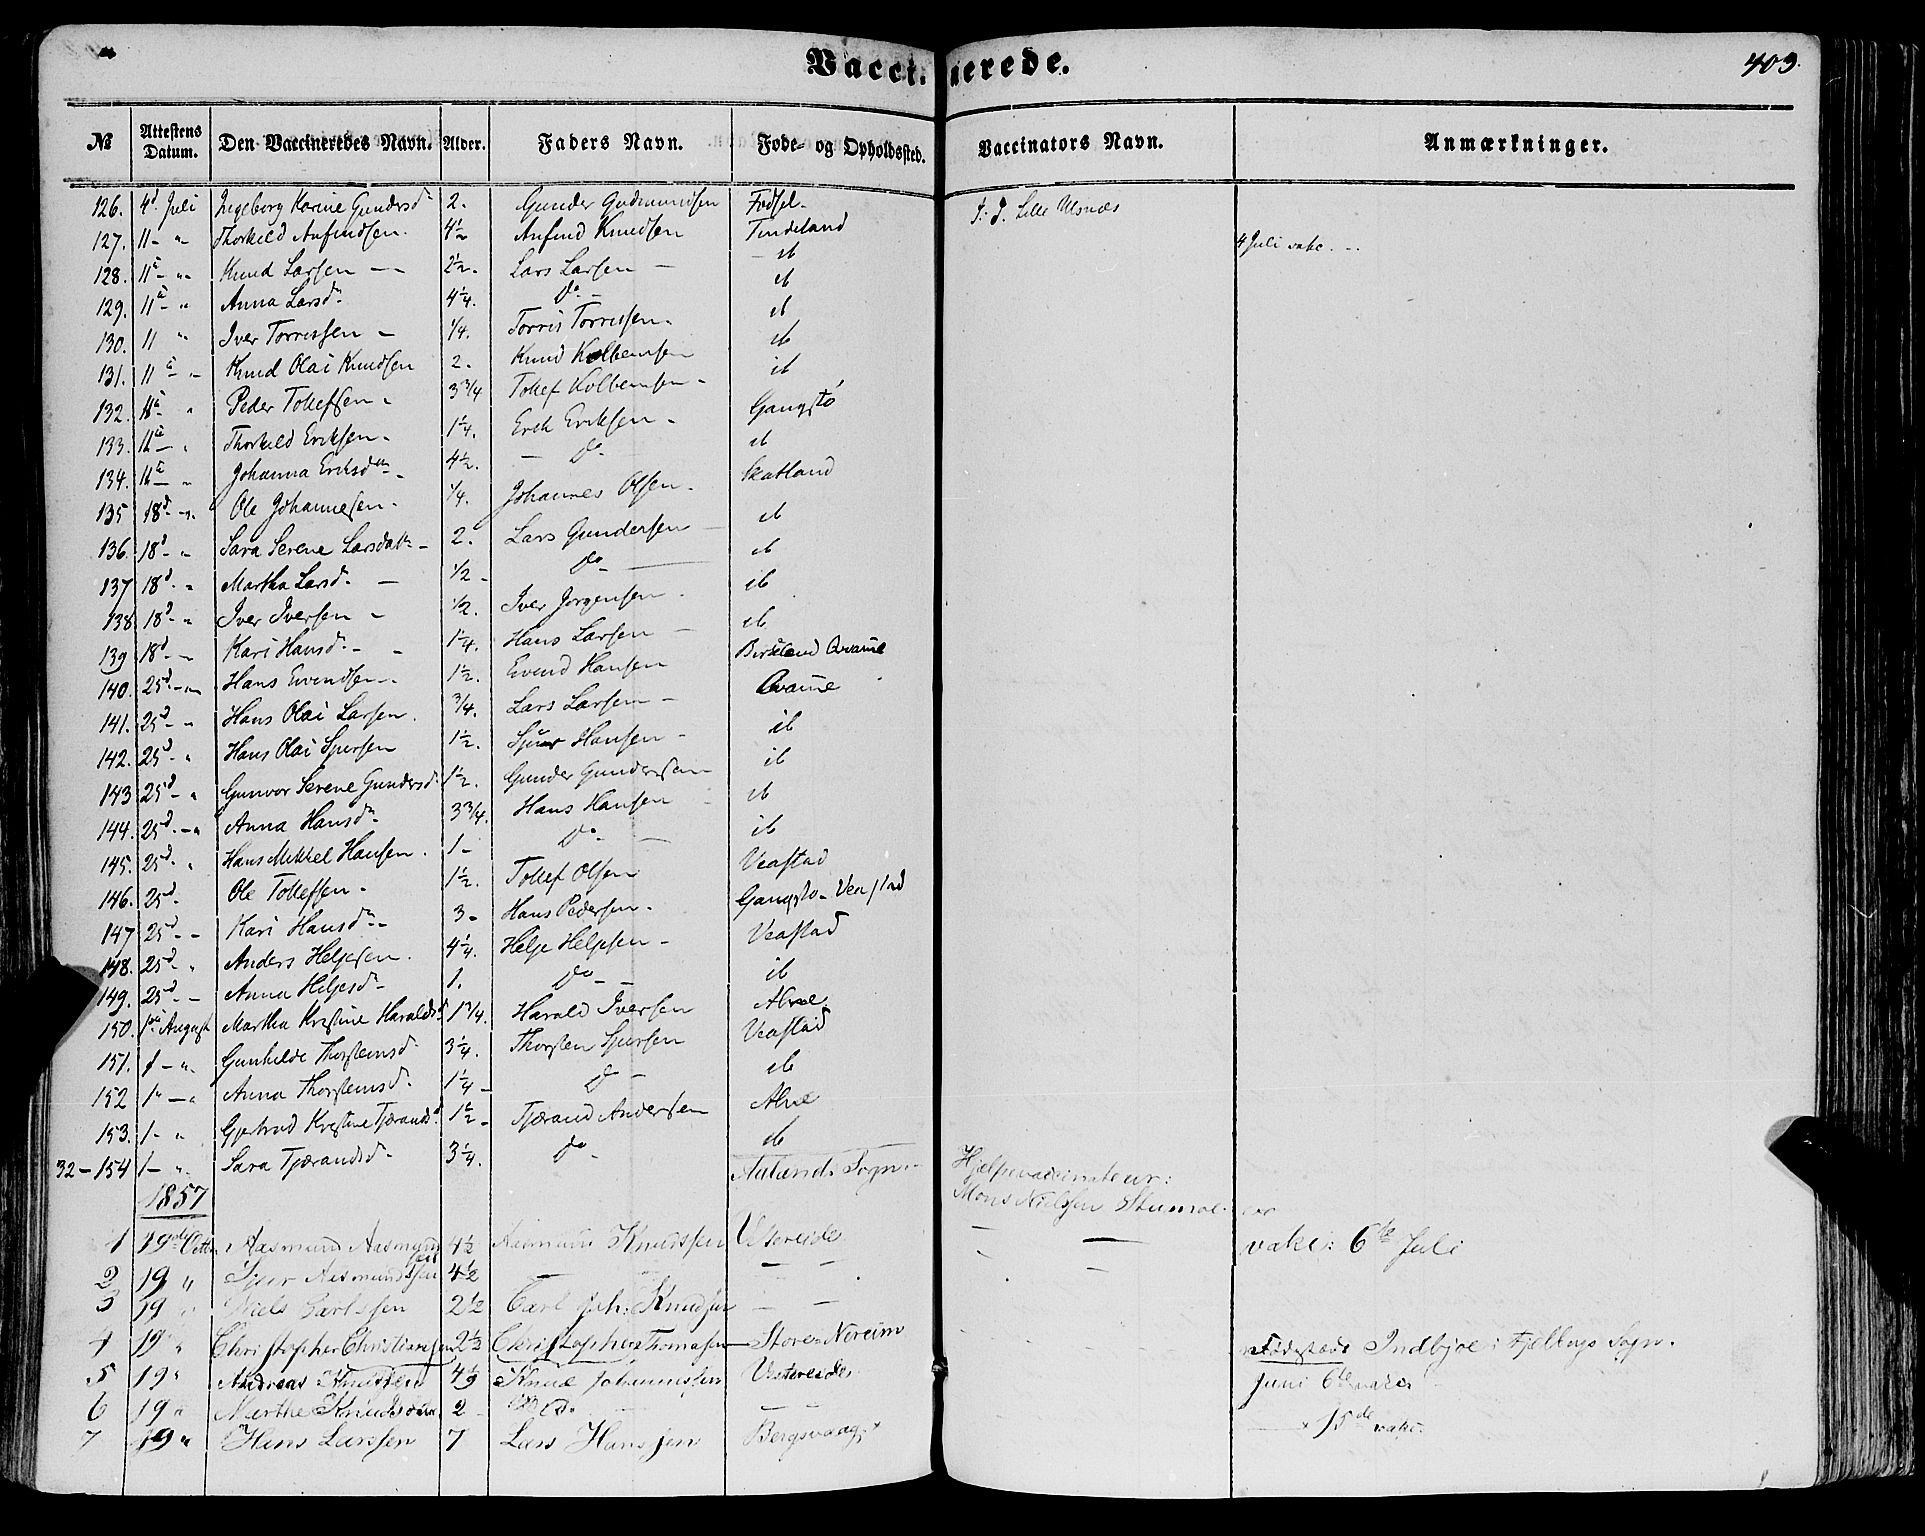 Vaccinerede.
403.
№ Attestens Datum. Den Vaccineredes Navn. Alder. Faders Navn. Føde- og Opholdssted. Vaccinators Navn. Anmærkninger.
126. 4d Juli Ingeborg Karine Gundersd. 2. Gunder Gudmundsen Fodsel. T: J. Lille Ulsnæs
127. 11 - " Thorkild Anfindsen. 4½ Anfind Knudsen Tindeland 4 Juli vakc.
128. 11 - " Knud Larsen 2½. Lars Larsen ib
129. 11 - " Anna Larsd. 4¼. Do ib
130. 11 " Iver Torressen ¼. Torris Torressen ib
131. 11 - " Knud Olai Knudsen 2. Knud Kolbensen ib
132. 11 - " Peder Tollefsen 3¾ Tollef Kolbensen ib
133. 11 - " Thorkild Eriksen 1¼. Erik Eriksen Gangstø
134. 11 - " Johanna Eriksdtr 4½. Do ib
135 18d - " Ole Johannesen ¼. Johannes Olsen Skatland
136. 18d - " Sara Serene Larsdatr 2. Lars Gundersen ib
137 18d - " Martha Larsd. ½ Do ib
138 18d - " Iver Iversen ½. Iver Jørgensen ib
139 18d - " Kari Hansd. 1¼. Hans Larsen ib
140. 25d - " Hans Evendsen 1½. Evend Hansen Birkeland Qvame
141. 25d - " Hans Olai Larsen. ¾. Lars Larsen Qvame
142. 25d - " Hans Olai Sjursen 1½. Sjur Hansen ib
143 25d - " Gunvor Serene Gundersd. 1½. Gunder Gundersen ib
144. 25d - " Anna Hansd. 3¾. Hans Hansen ib
145. 25d " Hans Mikkel Hansen. 1 - Do ib
146. 25d Ole Tollefsen 1½. Tollef Olsen Veastad
147 25d - Kari Hansd. 3 - Hans Pedersen Gangstø - Veastad
148. 25d " Anders Heljesen. 4¼. Helje Heljesen Veastad
149. 25d - Anna Heljesd. 1. Do ib
150. 1ste August Martha Kristine Haraldsd. 1¾. Harald Iversen Alvæ
151. 1 - " Gunhilde Thorsteinsd. 3¼. Thorsten Sjursen Veastad
152 1 - " Anna Thorsteinsd. 1¼ Do ib
153. 1 - " Gjertrud Kristine Tjerandsd. 1½ Tjærand Andersen Alvæ
32 - 154 1 - " Sara Tjærandsd. 3¼. Do ib
1857 Aalands Sogn Hjelpevaccinateur:
Mons Nielsen Stumoe
1 19de Octbr. Aasmund Aasmundsen 4½ Aasmund Knudssen Vestereide vakc: 6te Juli
2 19 " Sjur Aasmundsen 4½
3 19 " Niels Carlssen 2½ Carl Joh: Knudsen
4 19 " Christopher Christiansen 2½ Christopher Thomasen Store Noreim Fødested: Indbjoe i Fjelbergs Sogn.
5 19 " Andreas Knudsen 4½ Knud Johannessen Vestereide Juni 6te vakc
6 19 " Marthe Knudsdatter 2 Do 15de vakc.
7 19 " Hans Larssen 7 Lars Hanssen Bergsvaag